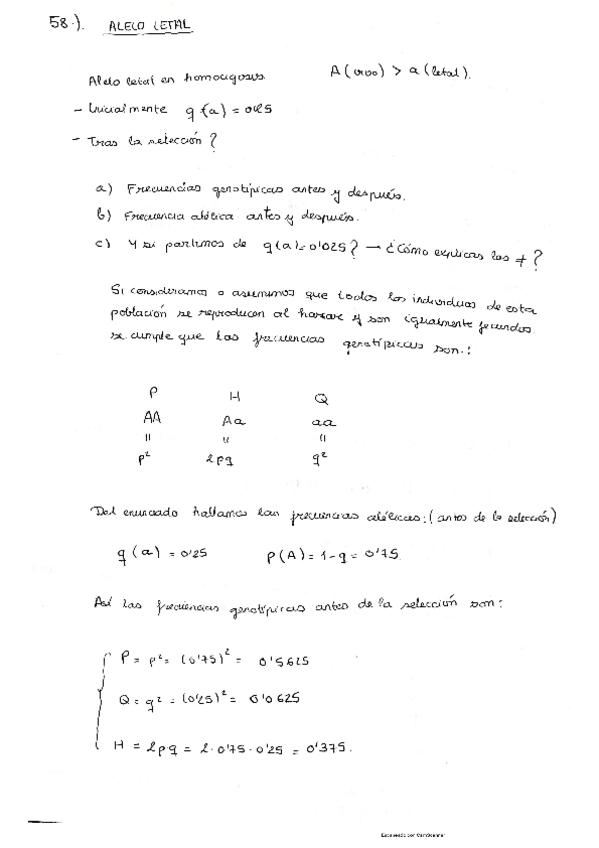 58.). ALELO LETAL
Alelo letal en homocigosis A (vivo) > a (letal).
- Inicialmente q (a) = 0'25
- Tras la selección?
a) Frecuencias genotípicas antes y después.
b) Frecuencia alélica antes y después.
c) Y si partimos de q(a)=0'025? → ¿Cómo explicas las ≠?
Si consideramos o asumimos que todos los individuos de esta
población se reproducen al hazar y son igualmente fecundos
se cumple que las frecuencias genotípicas son.:
P H Q
AA Aa aa
" " "
p² 2pq q²
Del enunciado hallamos las frecuencias alélicas: (antes de la selección)
q (a) = 0'25 p(A) = 1-q = 0'75.
Así las frecuencias genotípicas antes de la selección son:
P = p² = (0'75)² = 0'5625
Q = q² = (0'25)² = 0'0625
H = 2pq = 2·0'75·0'25 = 0'375.
Escaneado con CamScanner